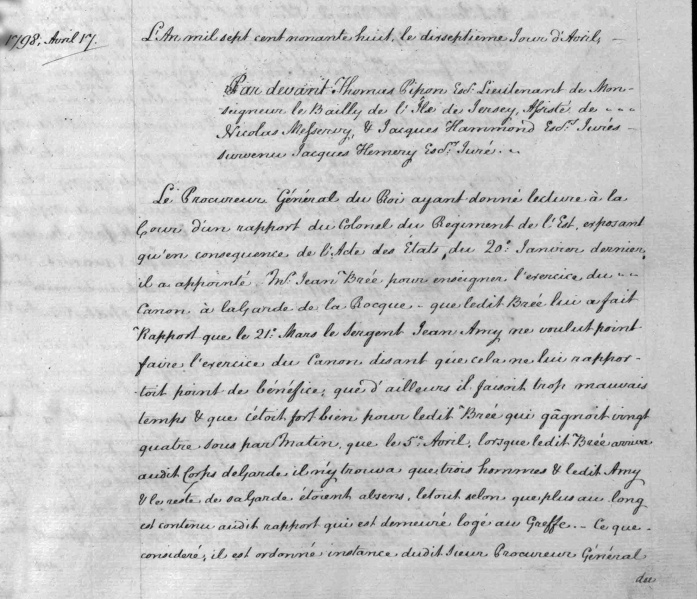 1798, Avril 17.
L'An mil sept cent nonante huit, le dixseptieme Jour d'Avril, —
Par devant Thomas Pipon Esc.r Lieutenant de Mon-
seigneur le Bailly de l'Ile de Jersey, Assisté de - - -
Nicolas Messervy, & Jacques Hammond Esc.rs Jurés -
survenu Jacques Hemery Esc.r Juré. -
Le Procureur Général du Roi ayant donné lecture à la
Cour d'un rapport du Colonel du Régiment de l'Est, exposant
qu'en consequence de l'Acte des États, du 20.e Janvier dernier,
il a appointé M.r Jean Brée pour enseigner l'exercice du - -
Canon à la Garde de la Rocque - que ledit Brée lui a fait
Rapport que le 21.e Mars le Sergent Jean Amy ne voulut point
faire l'exercice du Canon disant que cela ne lui rappor-
toit point de bénéfice; que d'ailleurs il faisoit trop mauvais
temps & que c'étoit fort bien pour ledit Brée qui gâgnoit vingt
quatre sous par Matin, que le 5.me Avril, lorsque ledit Brée arriva
audit Corps de Garde, il n'y trouva que trois hommes & ledit Amy
& le reste de sa Garde étoient absens, le tout selon que plus au long
est contenu audit rapport qui est demeuré logé au Greffe. - Ce que -
consideré, il est ordonné instance dudit Sieur Procureur Général
du